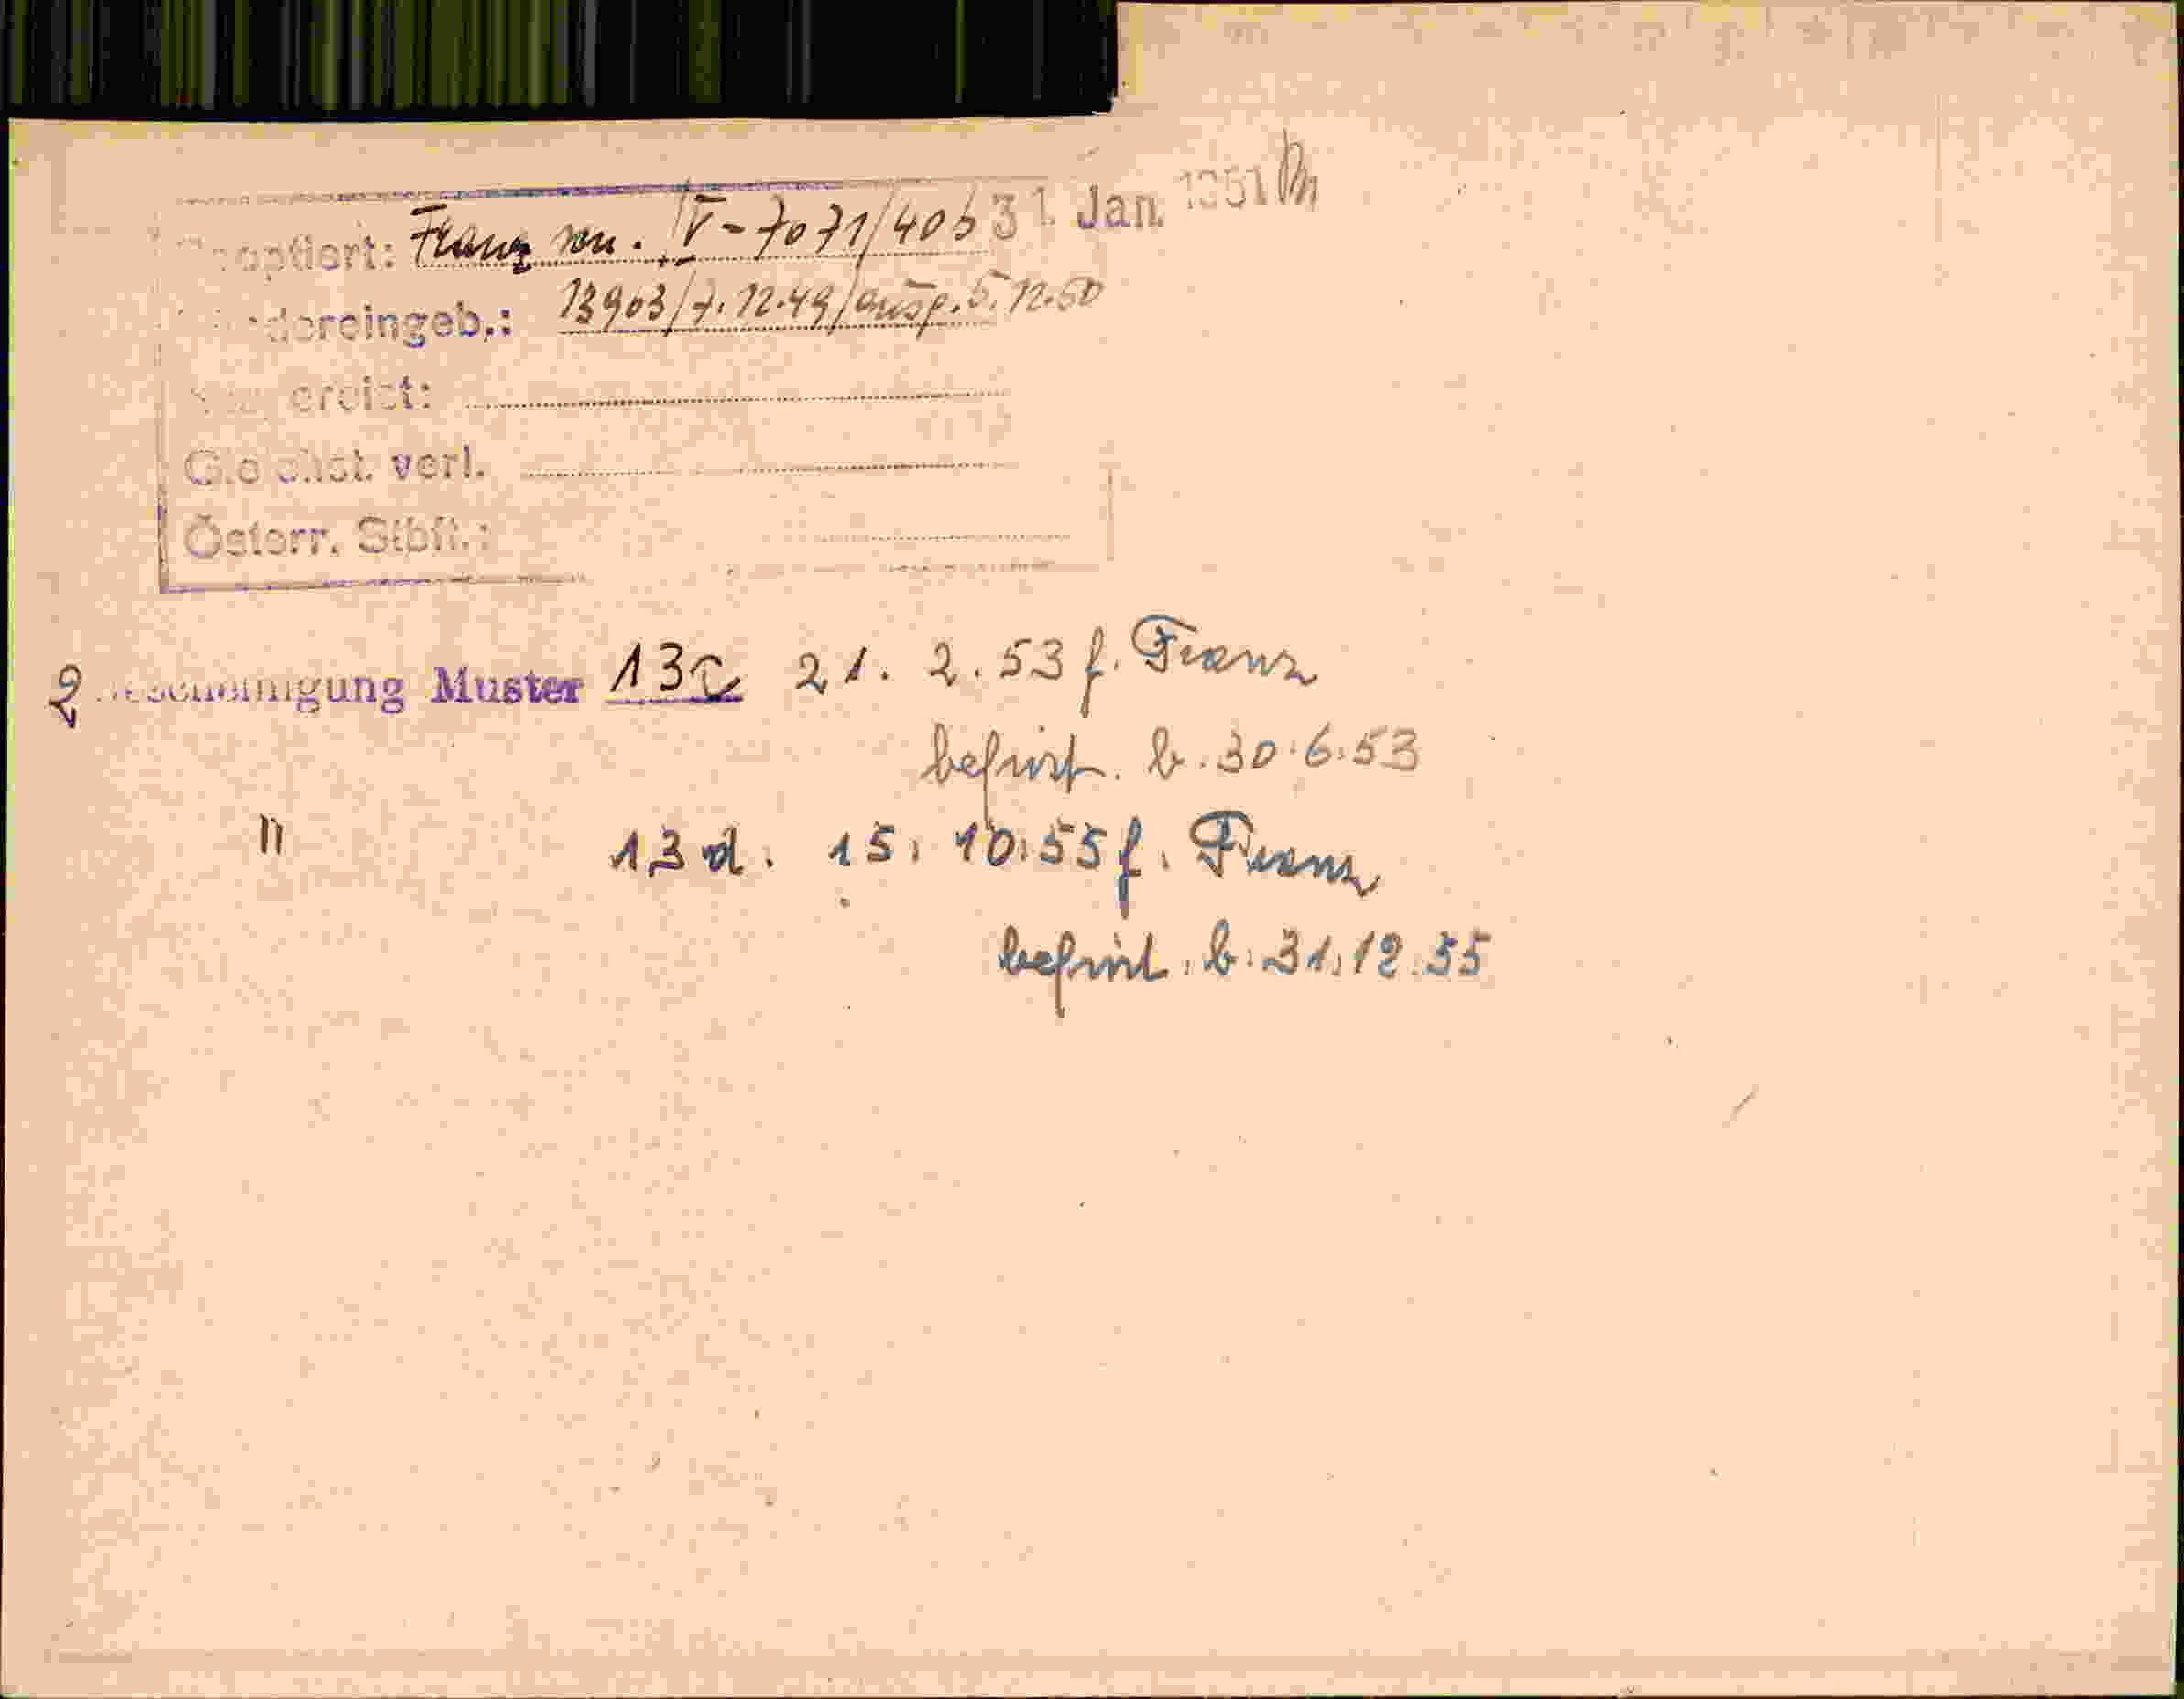 optiert: Franz sen. IV-7071/40b 31. Jan. 1951
dereingeb.: 13903/7.12.49/ausg. 5.12.50
ereist:
Gleichst. verl.
Österr. Stbft.:
2 Bescheinigung Muster 13c 21. 2. 53 f. Franz
befrist. b. 30.6.53
" 13d. 15. 10. 55 f. Franz
befrist. b. 31.12.55